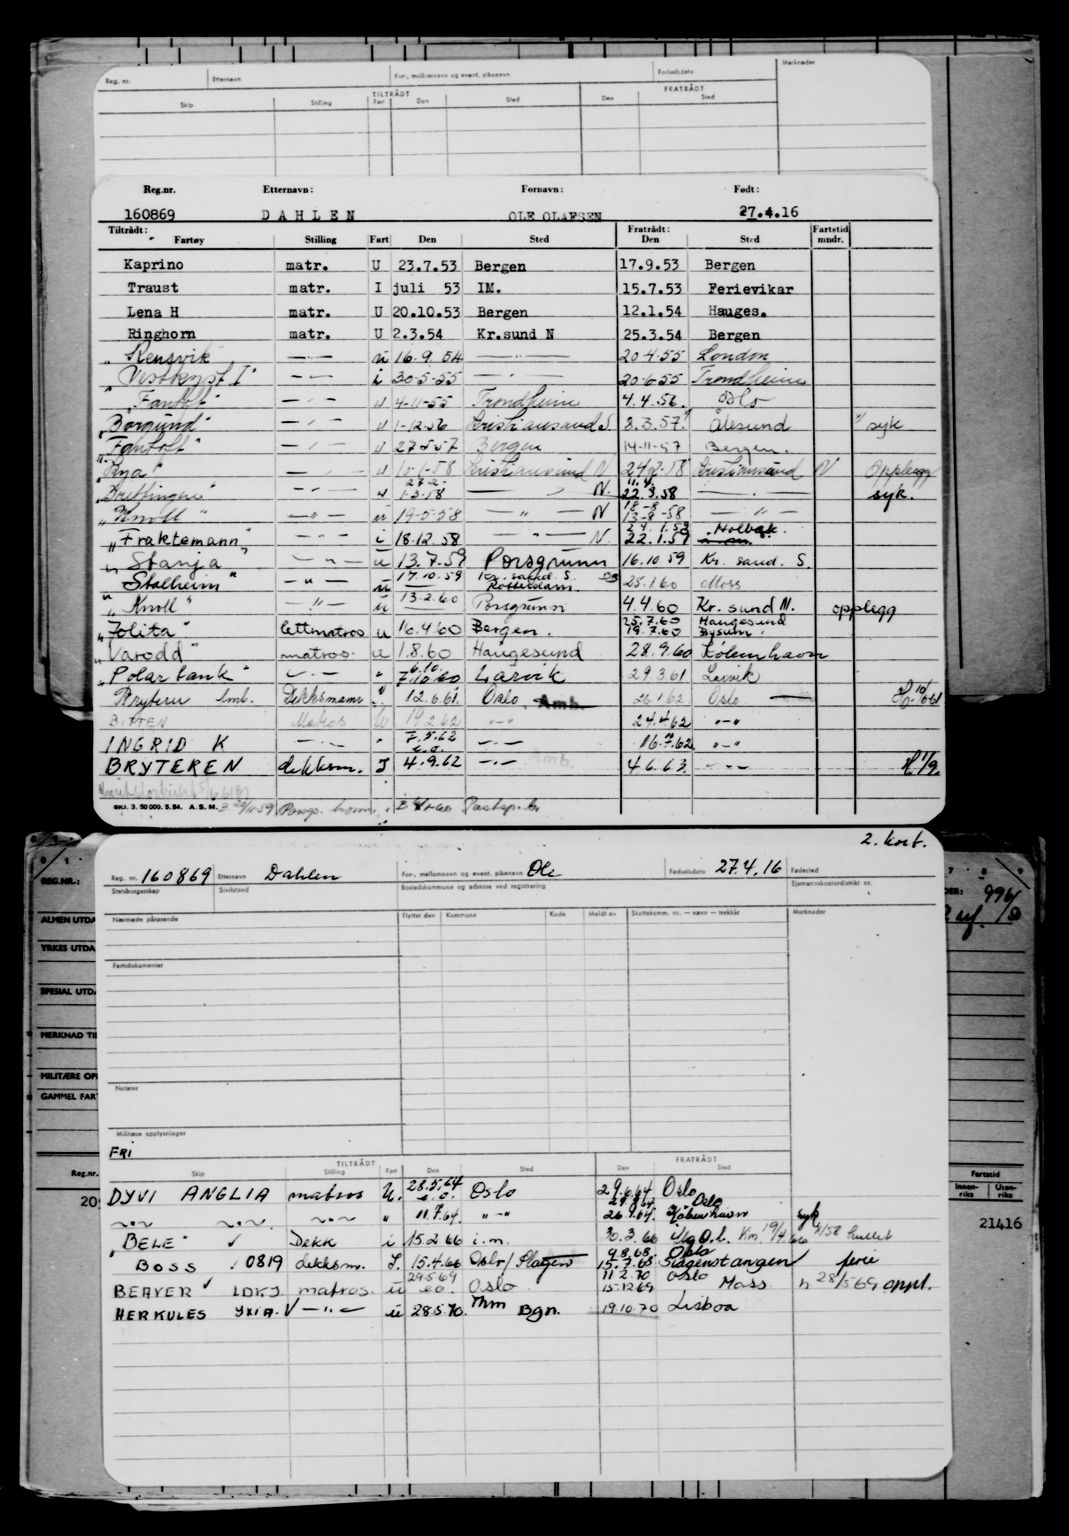 Reg. nr. Etternavn For-, mellomnavn og event. pikenavn Fødselsdato Merknader
TILTRÅDT FRATRÅDT
Skip Stilling Fart Den Sted Den Sted
Reg.nr. Etternavn: Fornavn: Født:
160869 DAHLEN OLE OLAFSEN 27.4.16
Tiltrådt: Fratrådt: Fartstid
Fartøy Stilling Fart Den Sted Den Sted mndr.
Kaprino matr. U 23.7.53 Bergen 17.9.53 Bergen
Traust matr. I juli 53 IM. 15.7.53 Ferievikar
Lena H matr. U 20.10.53 Bergen 12.1.54 Hauges.
Ringhorn matr. U 2.3.54 Kr.sund N 25.3.54 Bergen
"Rensvik" —"— u 16.9.54 —"— 20-4-55 London
"Vestkyst I" —"— i 30-5-55 —"— 20-6-55 Trondheim
"Fantoft" —"— u 4-11-55 Trondheim 4.4.56. Oslo
"Borgund" —"— u 1-12-56 Kristiansund S. 8.3.57. Ålesund syk
"Fantoft" —"— u 27-5-57 Bergen 14-11-57 Bergen.
—"— u 10-1-58 Kristiansund N 24-2-58 Kristiansund N Opplegg
27.2. 11.4.
—"— u 1-3-58 —"— N. 22.3.58 —"— syk.
"Knoll" —"— u 19-5-58 —"— N 13-8-58 —"—
24.1.59 Holbæk.
"Fraktemann" —"— i 18.12.58 —"— N. 22.1.59
"Stanja" —"— u 13.7.59 Porsgrunn 16.10.59 Kr. sand. S.
17.10.59 Kr. sand. S.
"Stalheim" —"— u Rotterdam. 25.1.60 Moss
"Knoll" —"— u 13-2-60 Porsgrunn 4.4.60 Kr. sund N. opplegg
25.7.60 Haugesund
"Jolita" lettmatros u 16.4.60 Bergen. 19.7.60 Bysum.
"Varodd" matros. u 1.8.60 Haugesund 28.9.60 København
6.10.
"Polarbank" —"— " 7.10.60 Larvik 29.3.61 Larvik
Bryteren Amb. Dekksmann " 12.6.61. Oslo Amb. 26.1.62 Oslo
BITTEN Matros U 19.2.62 "-" 24.4.62 "-"
INGRID K —"— " 7.5.62 —"— 16.7.62 "-"
e.o.
BRYTEREN dekksm. I 4.9.62 —"— Amb. 4.6.63. —"—
SKJ. 3. 50 000. 5. 54. A. S. M.
2. kort.
Reg. nr. 160869 Etternavn Dahlen For-, mellomnavn og event. pikenavn Ole Fødselsdato 27.4.16 Fødested
Statsborgerskap Sivilstand Bostedskommune og adresse ved registrering Sjømannskontordistrikt nr.
REG.NR.:
Nærmeste pårørende Flyttet den Kommune Kode Meldt av Skattekomm. nr. — navn — trekkår Merknader
ALMEN UTDA
YRKES UTDA
Fartsdokumenter
SPESIAL UTDA
MERKNAD TI
MILITÆRE OP
Notater
GAMMEL FAR
Militære opplysninger
FRI
TILTRÅDT FRATRÅDT
Reg.nr. Skip Stilling Fart Den Sted Den Sted Fartstid
Innen-riks Uten-riks
28.5.64
DYVI ANGLIA matros U. e.o. Oslo 29.6.64 Oslo
20 21416
" 11.7.64. "-" 26.9.64. København syk
"BELE" Dekk i 15.2.66 i.m. 30.3.66
9.8.68. Oslo
BOSS 0819 dekksm. I. 15.4.66 Oslo/Slagen 15.7.68 Slagenstangen ferie
29.5.69 11.2.70 Oslo
BEAVER LDKJ matros. u e.o. Oslo 15.12.69 Moss n 28/5 69 oppl.
HERKULES —"— u 28.5.70. Thm Bgn. 19.10.70 Lisboa